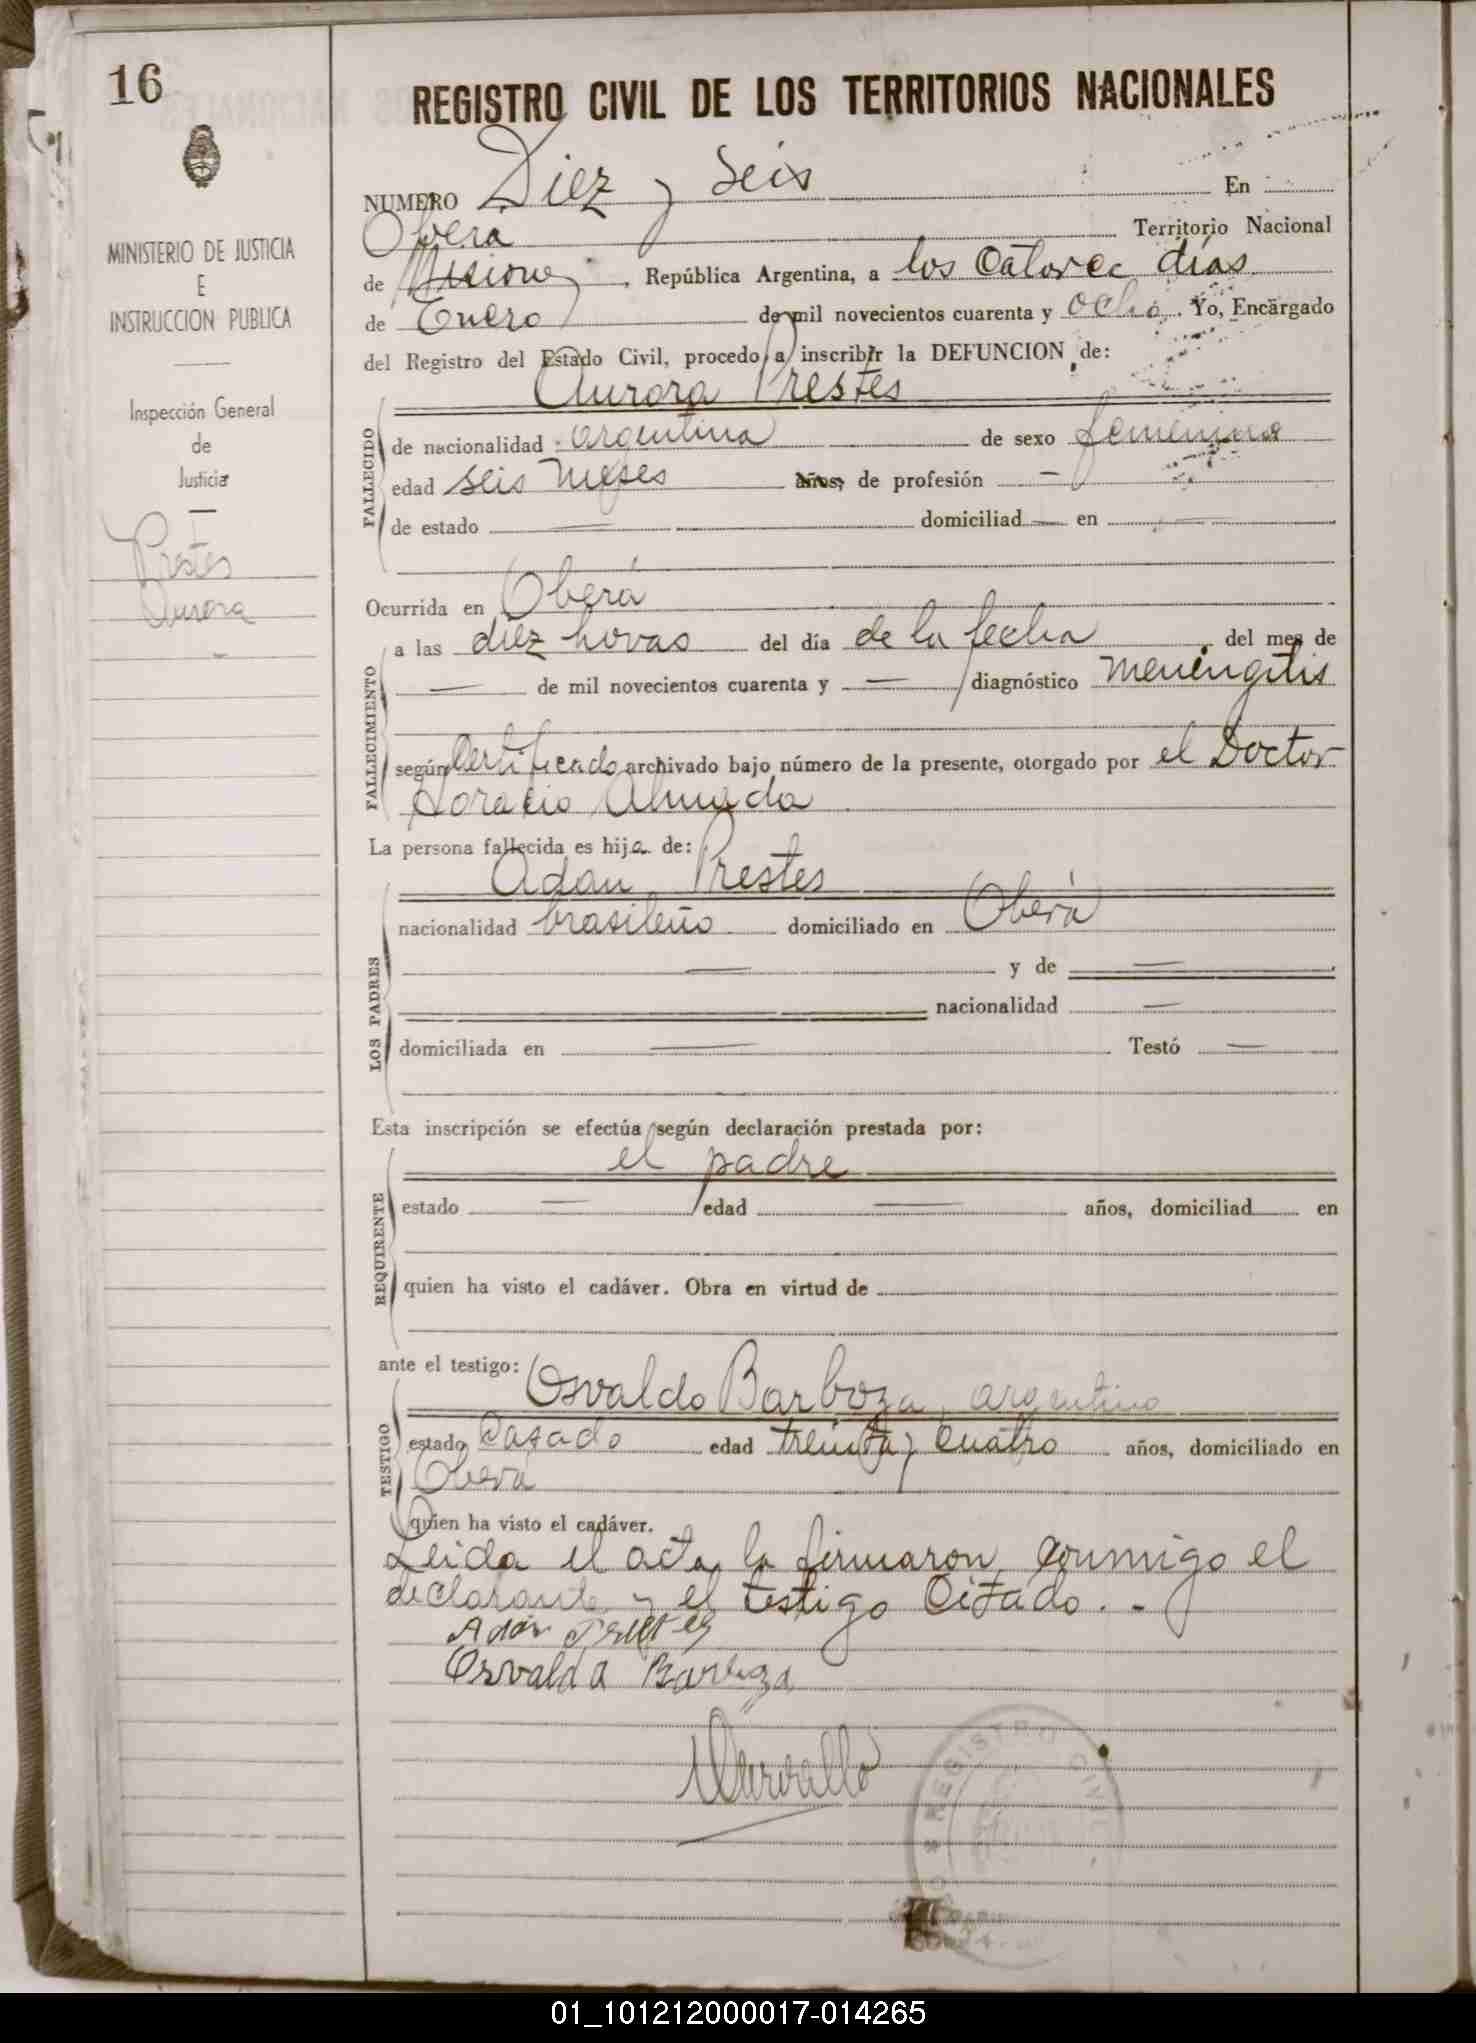 16
REGISTRO CIVIL DE LOS TERRITORIOS NACIONALES
MINISTERIO DE JUSTICIA
E
INSTRUCCION PUBLICA
Inspección General
de
Justicia
Prestes
Aurora
NUMERO Diez y seis En
Obera Territorio Nacional
de Misiones, República Argentina, a los catorce días
de Enero de mil novecientos cuarenta y ocho. Yo, Encargado
del Registro del Estado Civil, procedo a inscribir la DEFUNCION de:
Aurora Prestes
FALLECIDO
de nacionalidad argentina de sexo femenino
edad seis meses años, de profesión —
de estado — domiciliad — en —
Ocurrida en Oberá
FALLECIMIENTO
a las diez horas del día de la fecha del mes de
— de mil novecientos cuarenta y — diagnóstico Meningitis
según Certificado archivado bajo número de la presente, otorgado por el Doctor
Horacio Almada
La persona fallecida es hija de:
LOS PADRES
Adan Prestes
nacionalidad brasileño domiciliado en Oberá
— y de —
nacionalidad —
domiciliada en — Testó —
Esta inscripción se efectúa según declaración prestada por:
REQUIRENTE
el padre
estado — edad — años, domiciliad en
quien ha visto el cadáver. Obra en virtud de
ante el testigo: Osvaldo Barboza, argentino
TESTIGO
estado Casado edad treinta y cuatro años, domiciliado en
Oberá
quien ha visto el cadáver.
Leida el acta la firmaron conmigo el
declarante y el testigo citado. -
Adán Prestes
Osvaldo Barboza
REGISTRO CIVIL
01_101212000017-014265